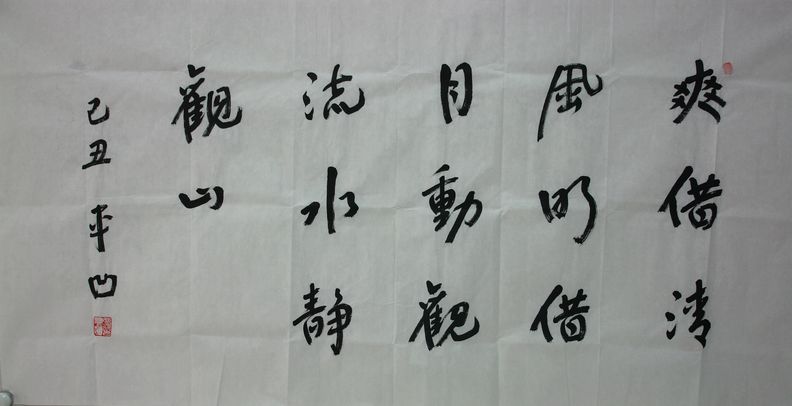 爽借清
風明借
月動觀
流水静
觀山
己丑 平凹